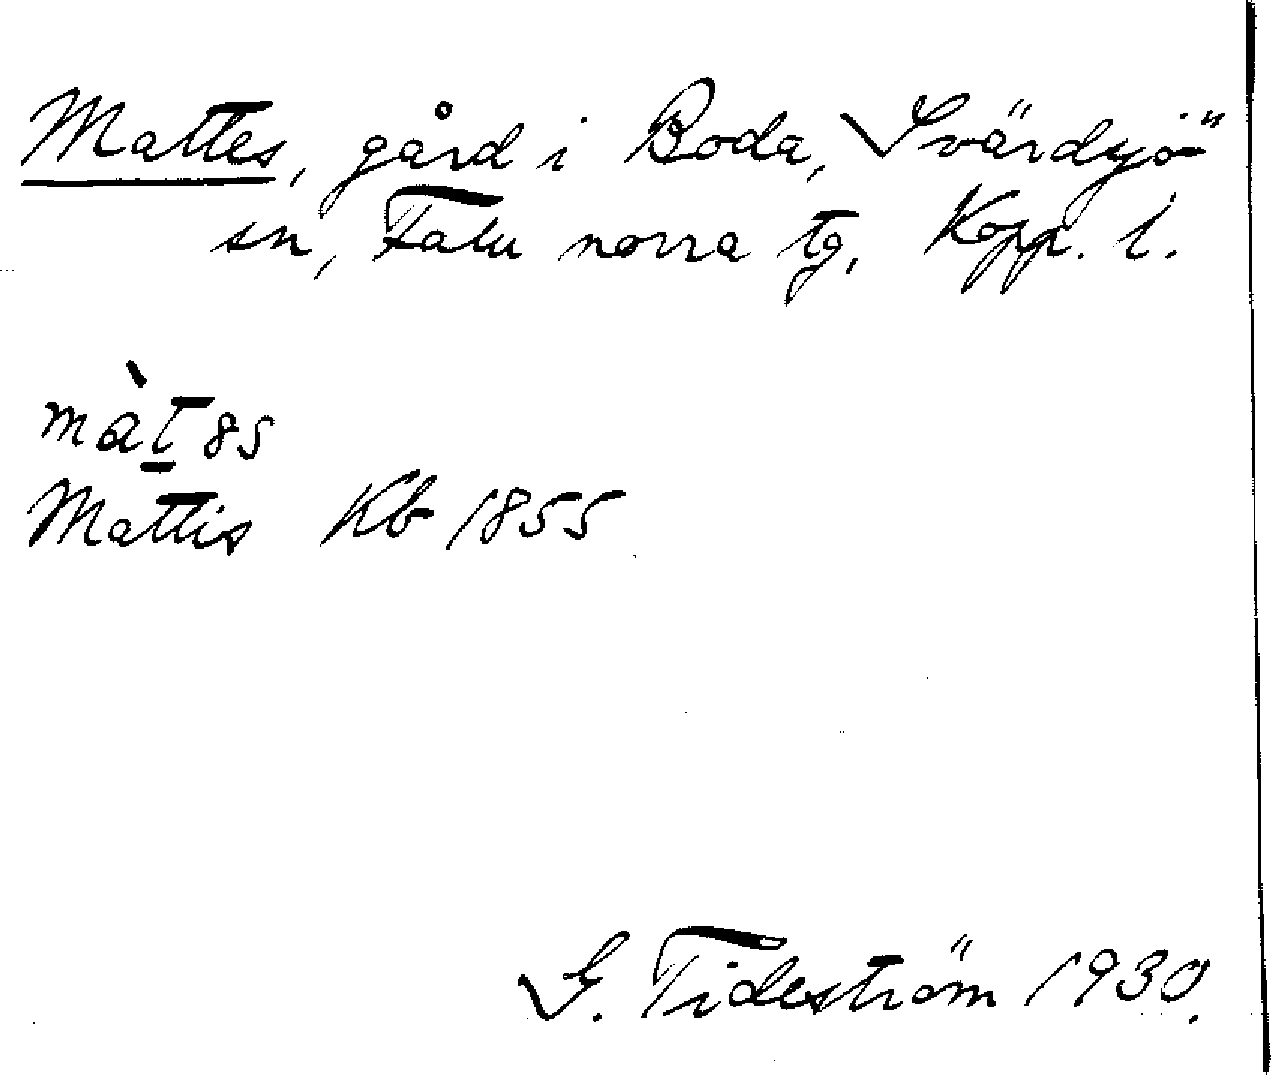 Mattes, gård i Boda, Svärdsjö
sn, Falu norra tg, Kopp. l.
màt̲85
Mattis Kb 1855
G. Tideström 1930.